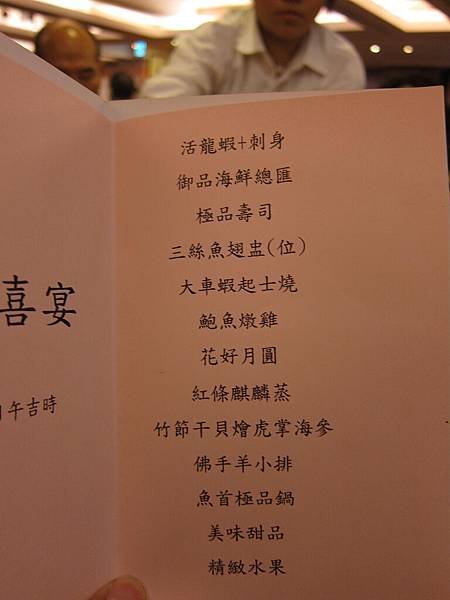 喜宴
午吉時
活龍蝦+刺身
御品海鮮總匯
極品壽司
三絲魚翅盅(位)
大車蝦起士燒
鮑魚燉雞
花好月圓
紅條麒麟蒸
竹節干貝燴虎掌海參
佛手羊小排
魚首極品鍋
美味甜品
精緻水果